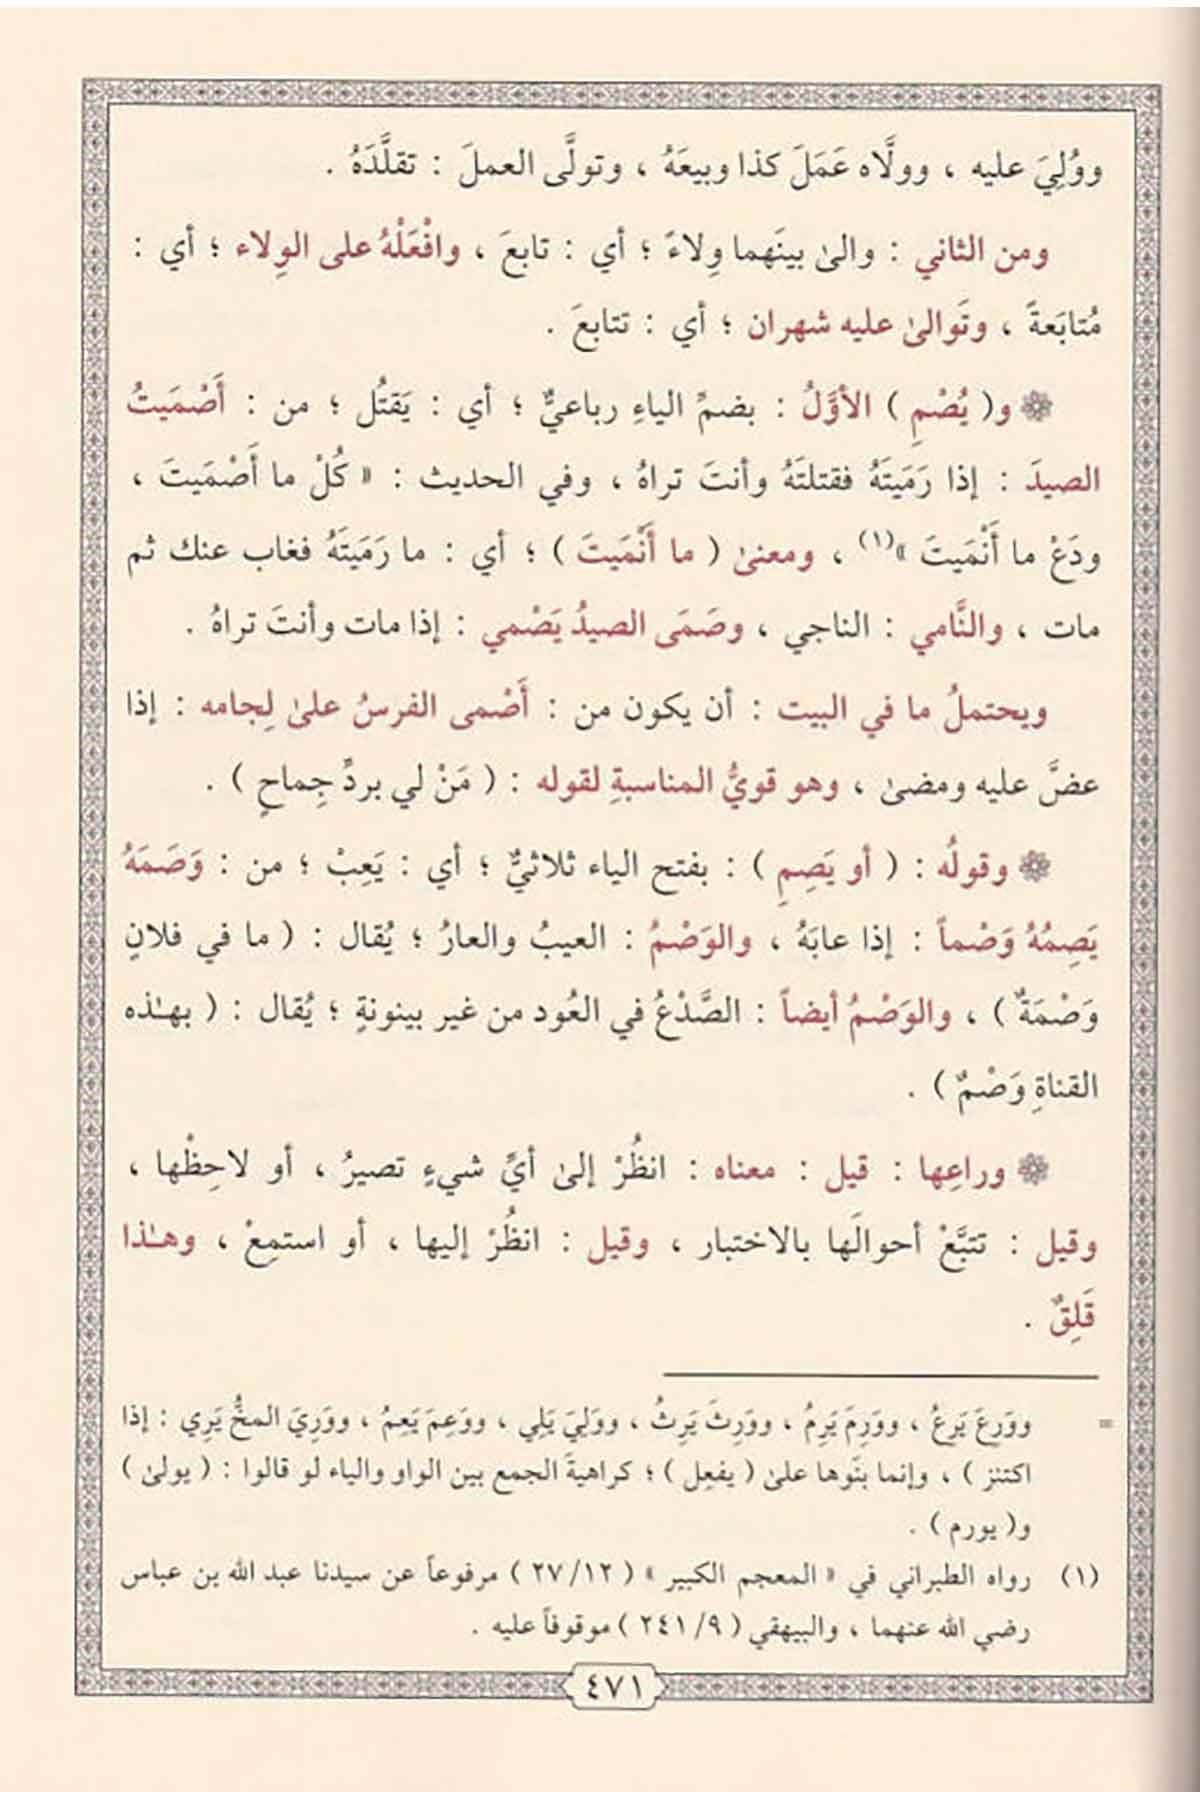 ووُلِيَ عليه ، وولَّاه عَمَلَ كذا وبيعَهُ ، وتولَّى العملَ : تقلَّدَهُ .
ومن الثاني : والىٰ بينَهما وِلاءً ؛ أي : تابعَ ، وافْعَلْهُ على الوِلاء ؛ أي :
مُتابَعةً ، وتَوالىٰ عليه شهران ؛ أي : تتابعَ .
و( يُصْمِ ) الأوَّلُ : بضمِّ الياءِ رباعيٌّ ؛ أي : يَقتُل ؛ من : أَصْمَيتُ
الصيدَ : إذا رَمَيتَهُ فقتلتَهُ وأنتَ تراهُ ، وفي الحديث : « كُلْ ما أَصْمَيتَ ،
ودَعْ ما أَنْمَيتَ »(١) ، ومعنىٰ ( ما أَنْمَيتَ ) ؛ أي : ما رَمَيتَهُ فغاب عنك ثم
مات ، والنَّامي : الناجي ، وصَمَى الصيدُ يَصْمي : إذا مات وأنتَ تراهُ .
ويحتملُ ما في البيت : أن يكون من : أَصْمى الفرسُ علىٰ لِجامه : إذا
عضَّ عليه ومضىٰ ، وهو قويُّ المناسبةِ لقوله : ( مَنْ لي بردِّ جِماحٍ ) .
وقولُه : ( أو يَصِمِ ) : بفتح الياء ثلاثيٌّ ؛ أي : يَعِبْ ؛ من : وَصَمَهُ
يَصِمُهُ وَصْماً : إذا عابَهُ ، والوَصْمُ : العيبُ والعارُ ؛ يُقال : ( ما في فلانٍ
وَصْمَةٌ ) ، والوَصْمُ أيضاً : الصَّدْعُ في العُود من غير بينونةٍ ؛ يُقال : ( بهـٰذه
القناةِ وَصْمٌ ) .
وراعِها : قيل : معناه : انظُرْ إلىٰ أيِّ شيءٍ تصيرُ ، أو لاحِظْها ،
وقيل : تتبَّعْ أحوالَها بالاختبار ، وقيل : انظُرْ إليها ، أو استمِعْ ، وهـٰذا
قَلِقٌ .
= وورِعَ يَرِعُ ، وورِمَ يَرِمُ ، وورِثَ يَرِثُ ، ووَلِيَ يَلِي ، ووَعِمَ يَعِمُ ، ووَرِيَ المخُّ يَرِي : إذا
اكتنز ) ، وإنما بنَوها علىٰ ( يفعِل ) ؛ كراهيةَ الجمع بين الواو والياء لو قالوا : ( يولىٰ )
و( يورم ) .
(١) رواه الطبراني في « المعجم الكبير » ( ٢٧/١٢ ) مرفوعاً عن سيدنا عبد الله بن عباس
رضي الله عنهما ، والبيهقي ( ٢٤١/٩ ) موقوفاً عليه .
٤٧١